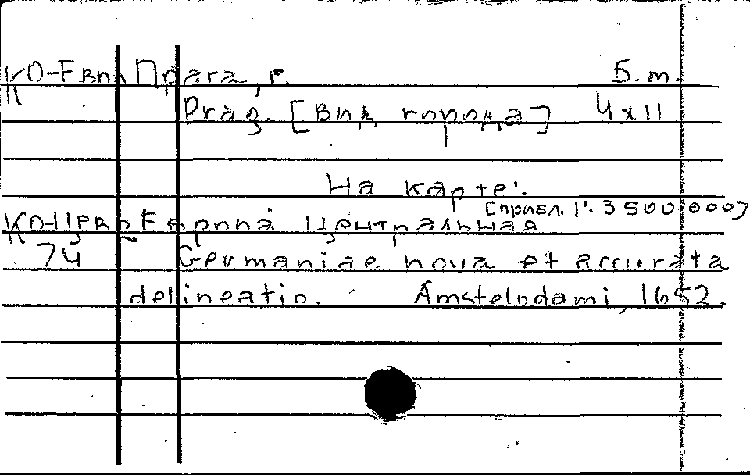 КО-Евп Прага, г. Б.м.
Prag. [Вид города] 4x11
На карте:
[прибл. 1:3500000]
КО-Цевр Европа Центральная
74 Germaniae nova et accurata
delineatio. Amstelodami, 1652.